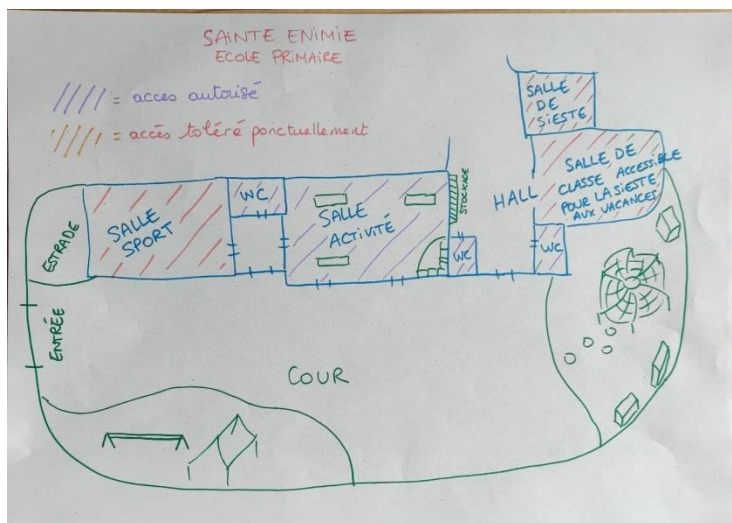 SAINTE ENIMIE
ECOLE PRIMAIRE
= acces autorisé
= accès toléré ponctuellement
SALLE
DE
SIESTE
SALLE DE
CLASSE ACCESSIBLE
POUR LA SIESTE
AUX VACANCES
HALL
STOCKAGE
WC
WC
WC
SALLE
ACTIVITÉ
SALLE
SPORT
ESTRADE
ENTRÉE
COUR